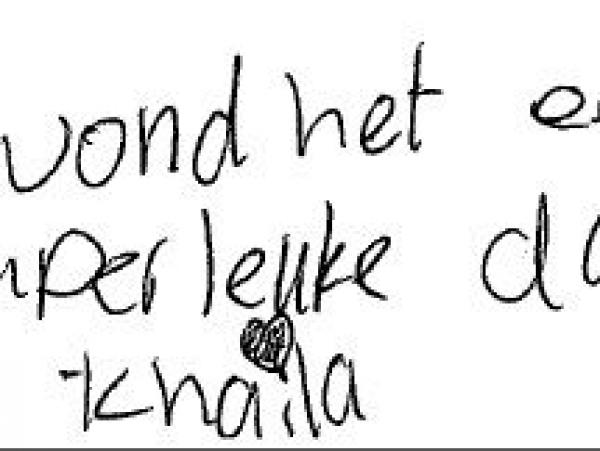 vond het e
uper leuke da
Khaila